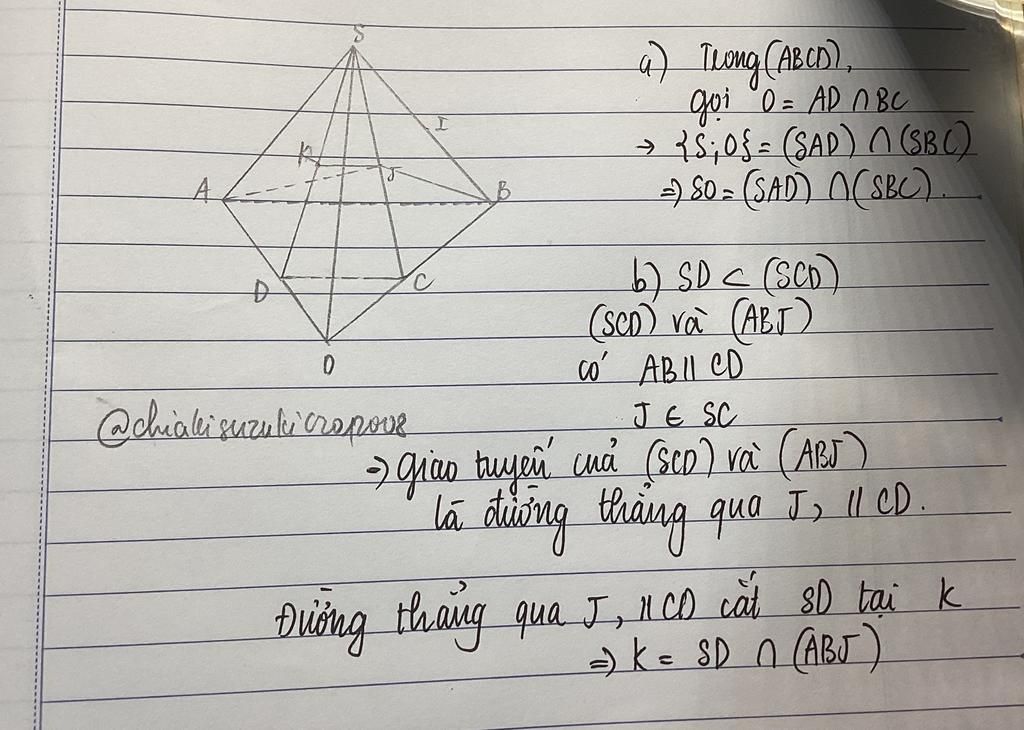 S
I
K
J
A
B
D
C
O
a) Trong (ABCD),
gọi O = AD ∩ BC
→ {S;O} = (SAD) ∩ (SBC)
⇒ SO = (SAD) ∩ (SBC).
b) SD ⊂ (SCD)
(SCD) và (ABJ)
có AB || CD
J ∈ SC
@chiakisuzukicropoo8
⇒ giao tuyến của (SCD) và (ABJ)
là đường thẳng qua J, || CD.
Đường thẳng qua J, || CD cắt SD tại K
⇒ K = SD ∩ (ABJ)